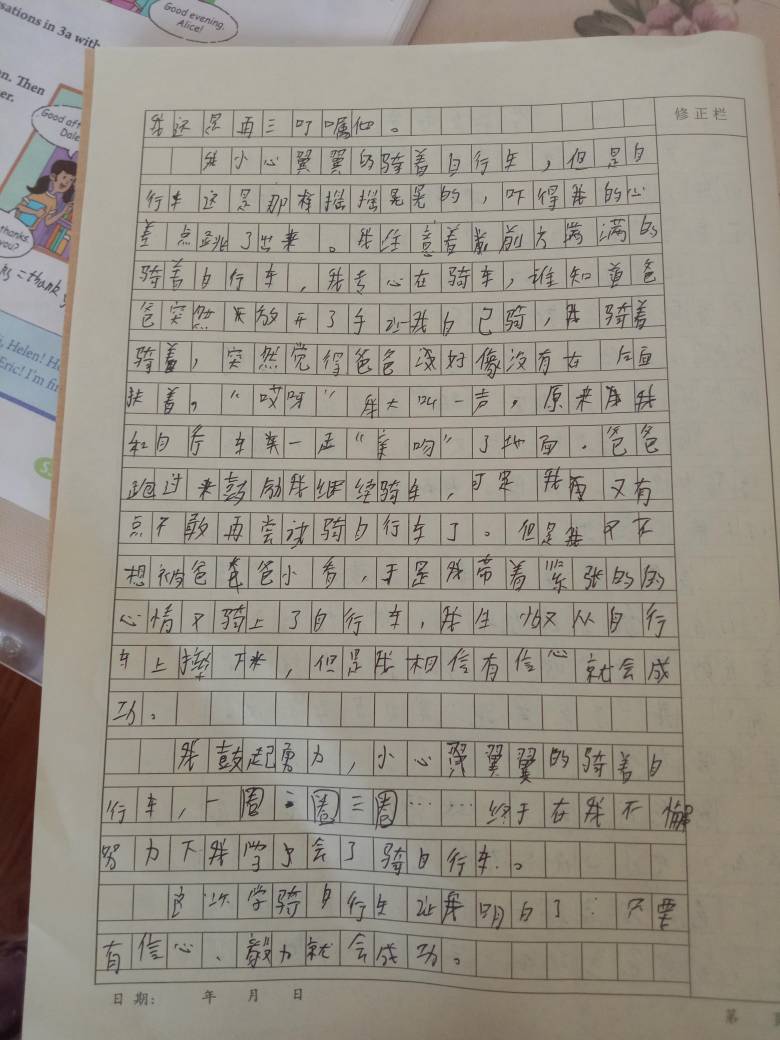 sations in 3a with
Good evening,
Alice!
n. Then
er.
Good aft
Dale
thanks
you?
ks = thank y
, Helen! H
Eric! I'm fin
修正栏
我还是再三叮嘱他。
我小心翼翼的骑着自行车，但是自
行车还是那样摇摇晃晃的，吓得我的心
差点跳了出来。我注意着最前方满满的
骑着自行车，我专心在骑车，谁知道爸
爸突然放开了手让我自己骑，我骑着
骑着，突然觉得爸爸好像没有在后面
扶着。“哎呀”我大叫一声，原来我
和自行车来一起“亲吻”了地面．爸爸
跑过来鼓励我继续骑车，可是我有又有
点不敢再尝试骑自行车了。但是我又不
想被爸爸小看，于是我带着紧张的的
心情又骑上了自行车，我生怕又从自行
车上摔下来，但是我相信有信心就会成
功。
我鼓起勇力，小心翼翼翼的骑着自
行车，一圈二圈三圈……终于在我不懈
努力下我学会了骑自行车．。
这次学骑自行车让我明白了：只要
有信心、毅力就会成功。
日期： 年 月 日
第